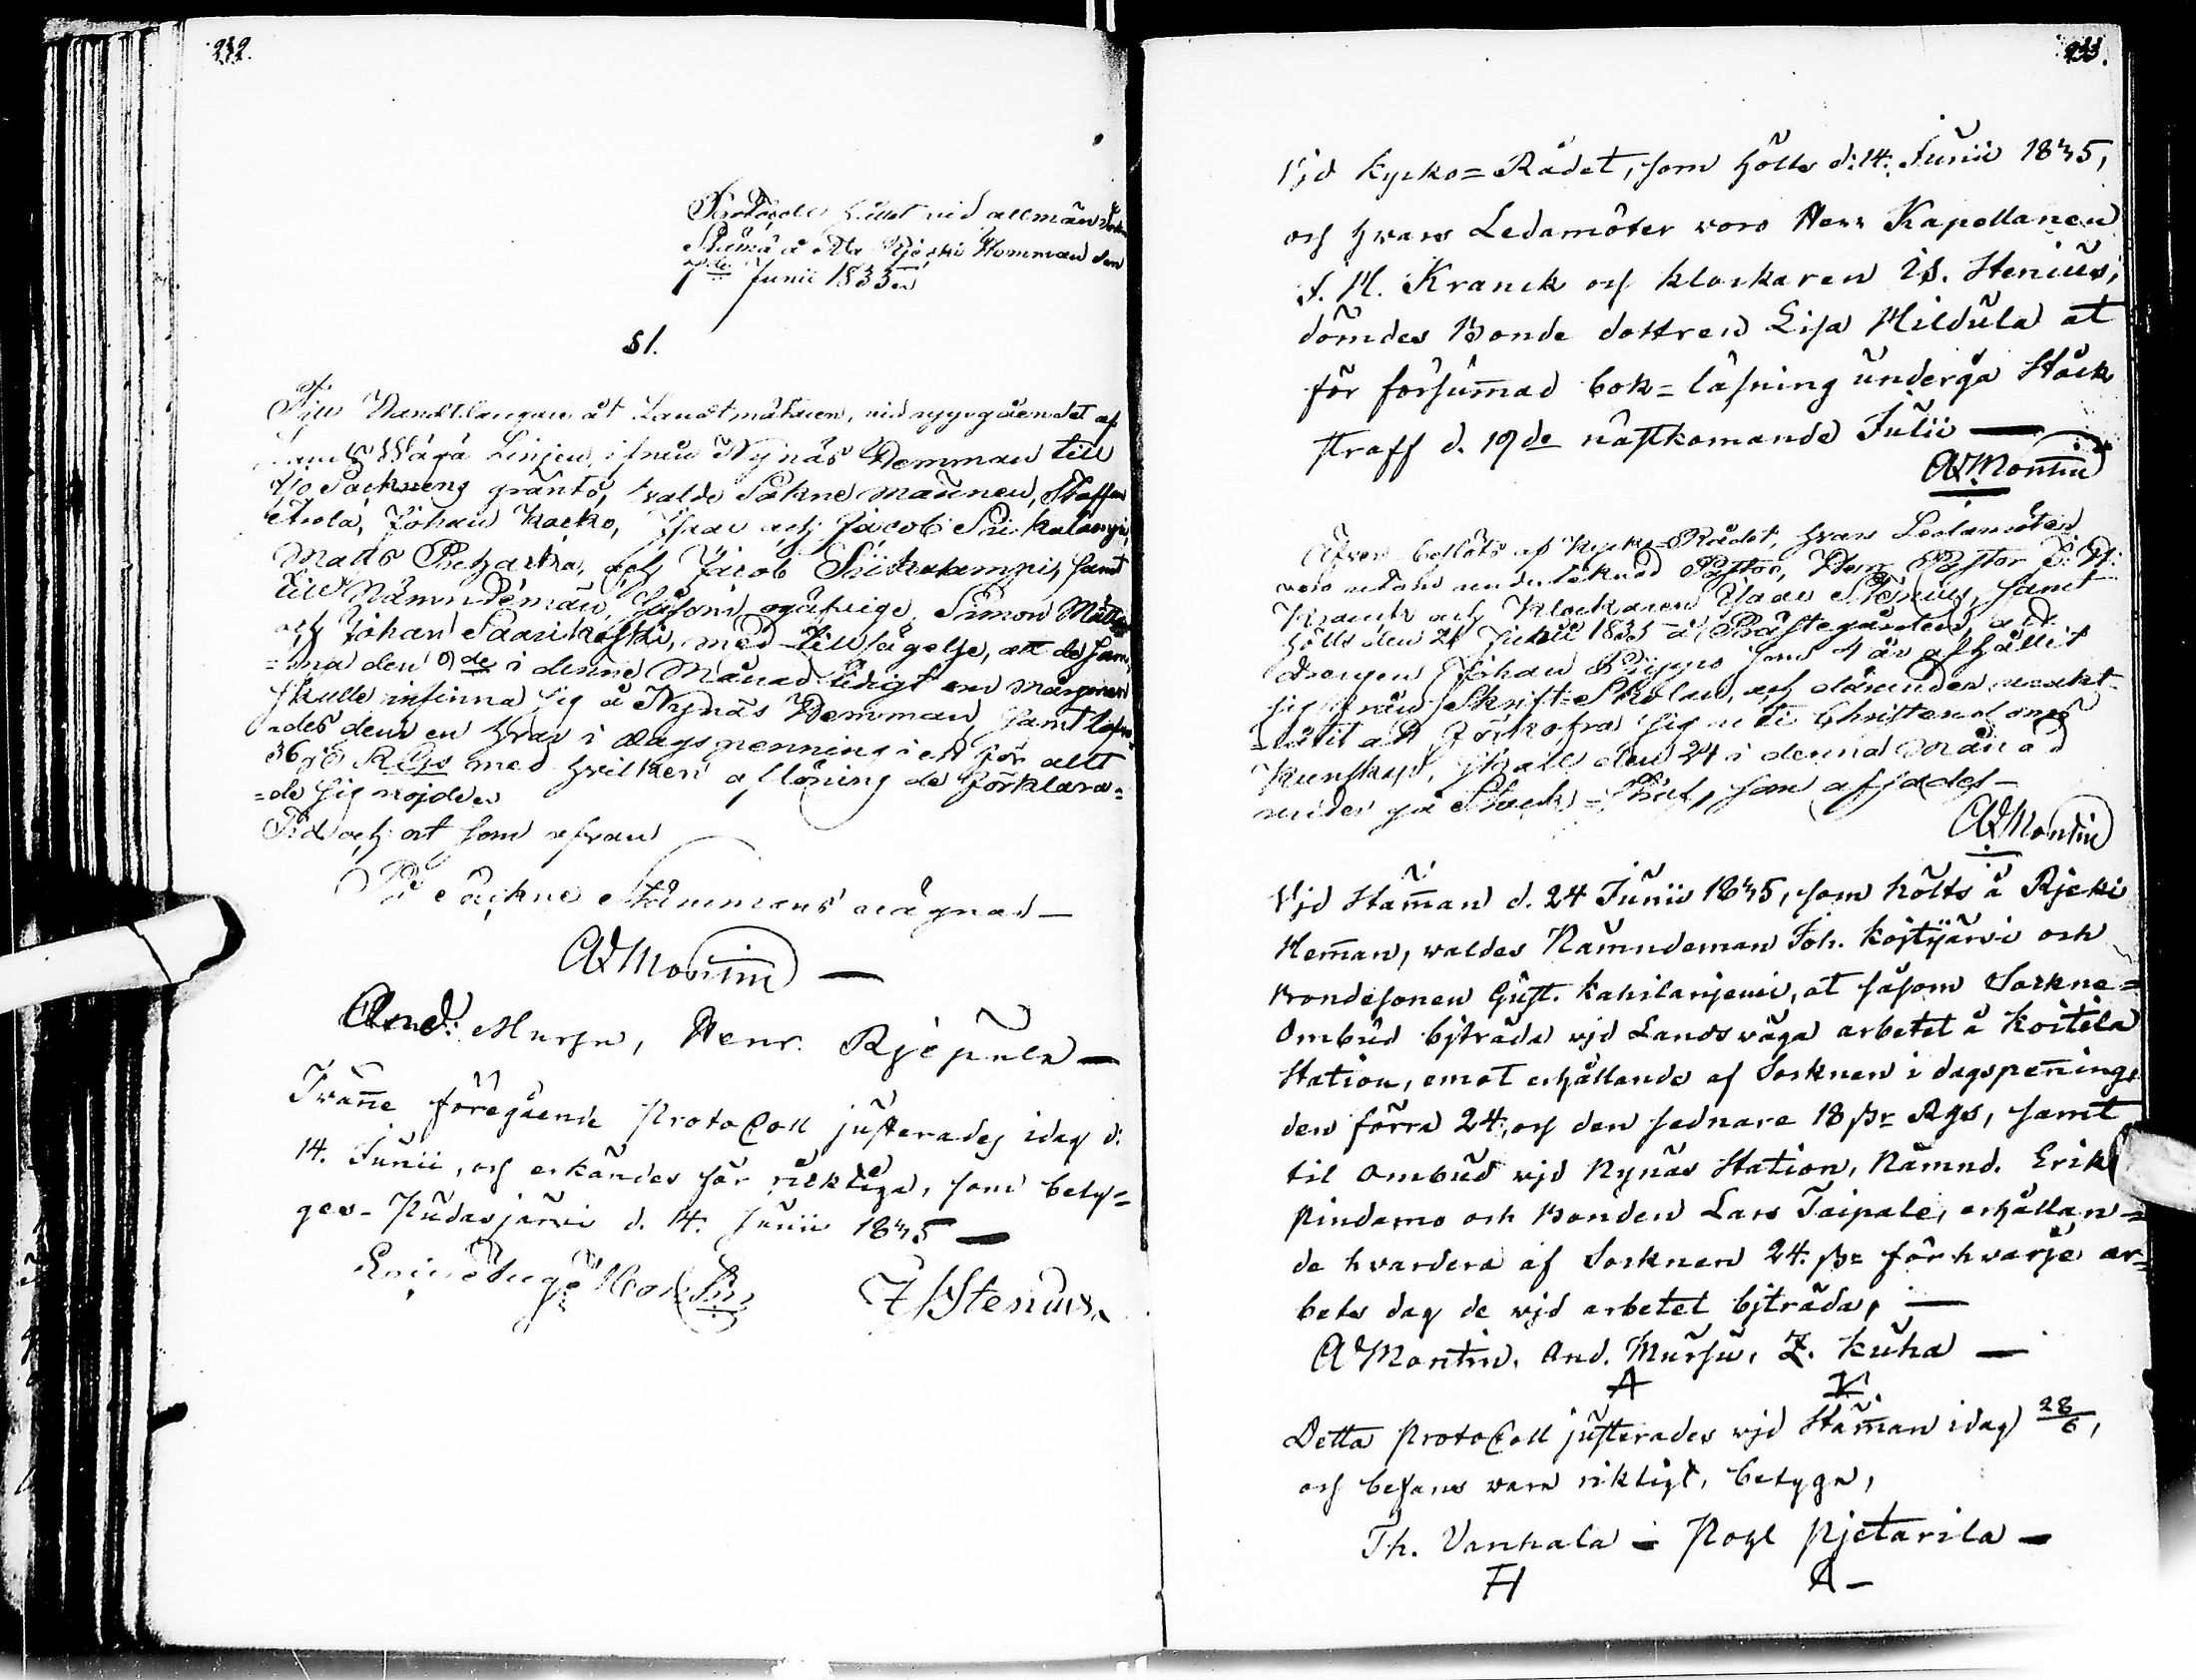 232.
Protocoll hållet vid allmän Sokne
Stämma å Rjeski Hemman den
7de Junii 1835.
§1.
Till Handtlangare åt Landtmätaren, vid uppgåendet af
Lands Wägs Linjen, ifrån Nynäs Hemman till
Socknens gränts, valde Sokne männen, Staffan
Johan Kocko, Isac och Jacob Siikalampi,
Matts och Jacob Siikalampi, samt
till Nämndemän, såsom ogäfvige, Simon
och Johan Saarikoski, med tillsägelse, att de sam=
=ma den 9de i denne Månad tidigt om Morgonen
skulle infinna sig å Nynäs Hemman, samt lofva=
=des dem en hvar i dagspenning i ett för allt
36 Rgs med hvilken aflöning de förklara=
=de sig nöjde.
Tid och ort som ofvan
På Sockne Stämmans vägnar —
AdMontin —
And: Mursu, Henr. Rjepula —
Tvänne föregående ProtoColl justerades idag d:
14. Junii, och erkändes för riktiga, som bety=
ges - Pudasjärvi d. 14. Junii 1835 —
Stenius
233.
Vid Kyrko=Rådet, som hölts d: 14. Junii 1835,
och hvars Ledamöter voro Herr Kapellanen
J. H. Kranck och klockaren Is. Stenius,
dömdes Bonde dottren Lisa Hildula at
för försummad bok=läsning undergå Stock
straff d. 19de nästkomande Julii —
AdMontin
Äfven beslöts af Kyrko=Rådet, hvars Ledamöter
voro utom underteknad Pastor, Herr Pastor J: H:
Kranck och Klockaren Isaac Stenius, samt
hölts den 21 Junii 1835 å Prästegården, at
drengen Johan som 4 år afhållit
sig från Skrift=Skolan, och därunder urakt=
=låtit att förkofra sig uti Christendoms
Kunskap, skall den 24 i denna Månad
undergå Stock=straf, som afsades —
AdMontin
Vid Stämman d. 24 Junii 1835, som hölts å Rjeki
Hemman, valdes Nämndeman Joh. Kojtijärvi och
Bondesonen Gust. Kahilaniemi, at såsom Sockne=
Ombud biträda vid Landsväga arbetet å Koitila
Station, emot erhållande af Socknen i dagspening,
den förra 24, och den sednare 18 Rgs, samt
til Ombud vid Nynäs Station, Nämnd. Erik
Pindamo och Bonden Lars Taipale, erhållan=
de hvardera af Socknen 24. för hvarje ar=
bets dag de vid arbetet biträda, —
AdMontin. And. Mursu, Z. Kuha —
A K.
Detta ProtoColl justerades vid Stämman idag 28/6,
och befans vara riktigt, betyga,
Th. Vanhala — Pål Pjetarila —
H A —